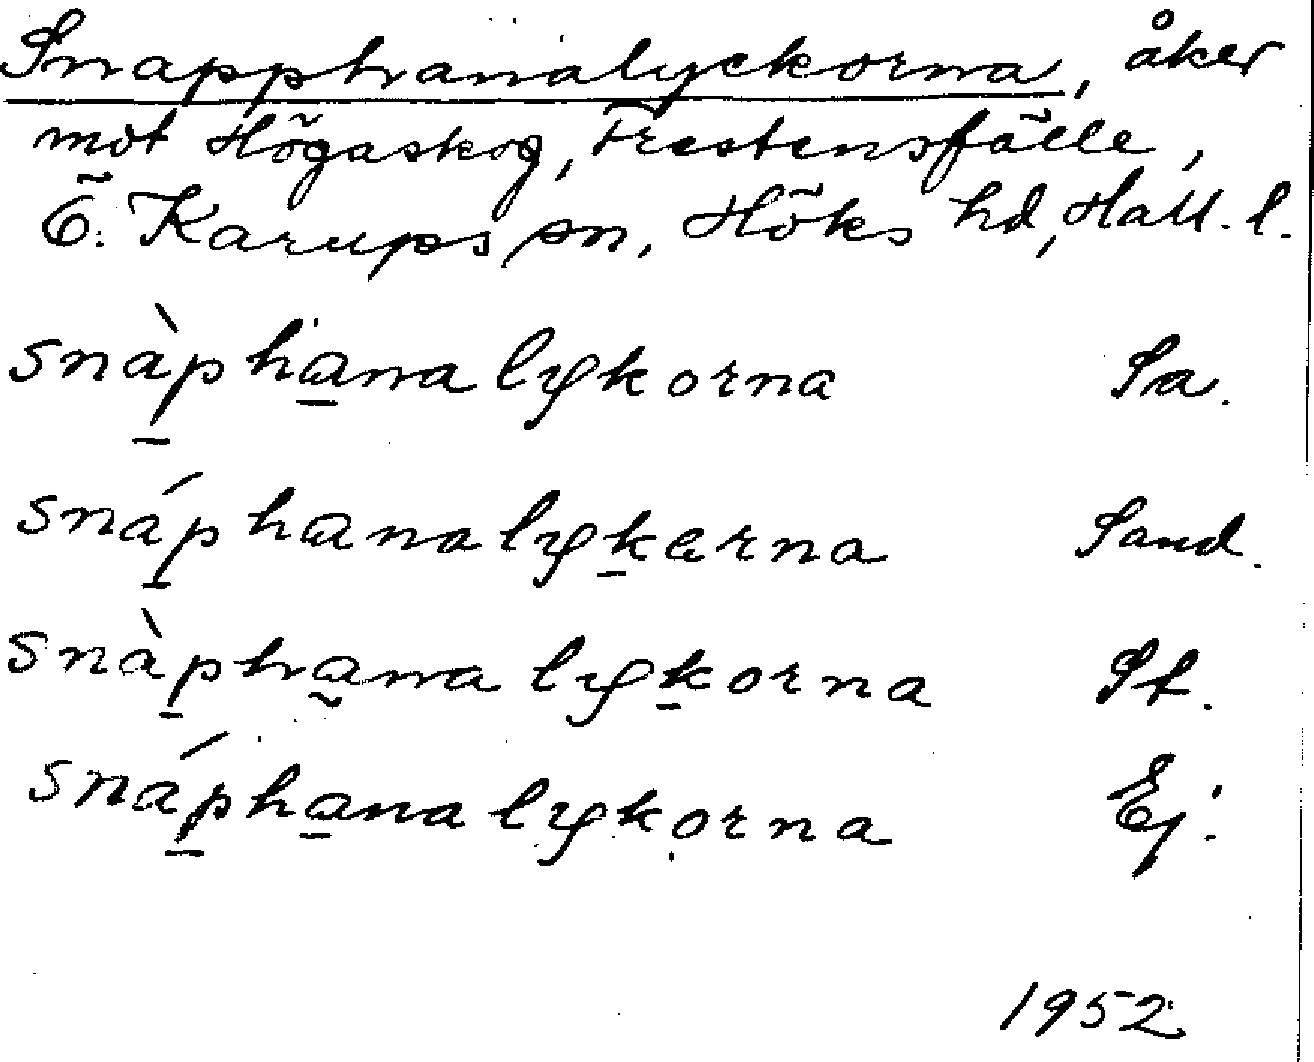 Snapphanalyckorna, åker
mot Högaskog, Trestensfälle,
Ö. Karups sn, Höks hd, Hall. l.
snàphana lykorna Sa.
snáphana lykarna Sand.
snàphana lykorna St.
snáphana lykorna Ej.
1952